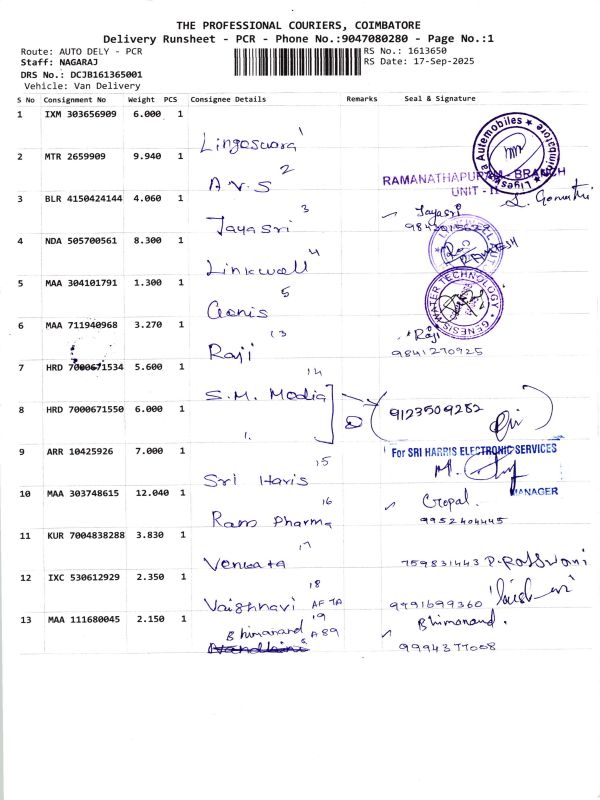 THE PROFESSIONAL COURIERS, COIMBATORE
Delivery Runsheet - PCR - Phone No.:9047080280 - Page No.:1
Route: AUTO DELY - PCR RS No.: 1613650
Staff: NAGARAJ RS Date: 17-Sep-2025
DRS No.: DCJB161365001
Vehicle: Van Delivery
S No Consignment No Weight PCS Consignee Details Remarks Seal & Signature
1 IXM 303656909 6.000 1
Lingeswara 1
Liyes Automobiles Coimbatore
2 MTR 2659909 9.940 1
A.V.S 2
RAMANATHAPURAM - BRANCH
UNIT - II
3 BLR 4150424144 4.060 1
Jayasri 3
Jayasri
4 NDA 505700561 8.300 1
Linkwell 4
5 MAA 304101791 1.300 1
Genis 5
GENESIS WATER TECHNOLOGY
6 MAA 711940968 3.270 1
Raji 13
Raji
9841270925
7 HRD 7000671534 5.600 1
S.M. Media 14
8 HRD 7000671550 6.000 1
9123509282
9 ARR 10425926 7.000 1
Sri Haris 15
For SRI HARRIS ELECTRONIC SERVICES
MANAGER
10 MAA 303748615 12.040 1
Ram Pharma 16
Gopal.
9952404445
11 KUR 7004838288 3.830 1
Venkata 17
759831443
12 IXC 530612929 2.350 1
Vaishnavi 18
AF 7A
9791699360
13 MAA 111680045 2.150 1
Bhimanand 19
A 89
Bhimanand.
9994377008